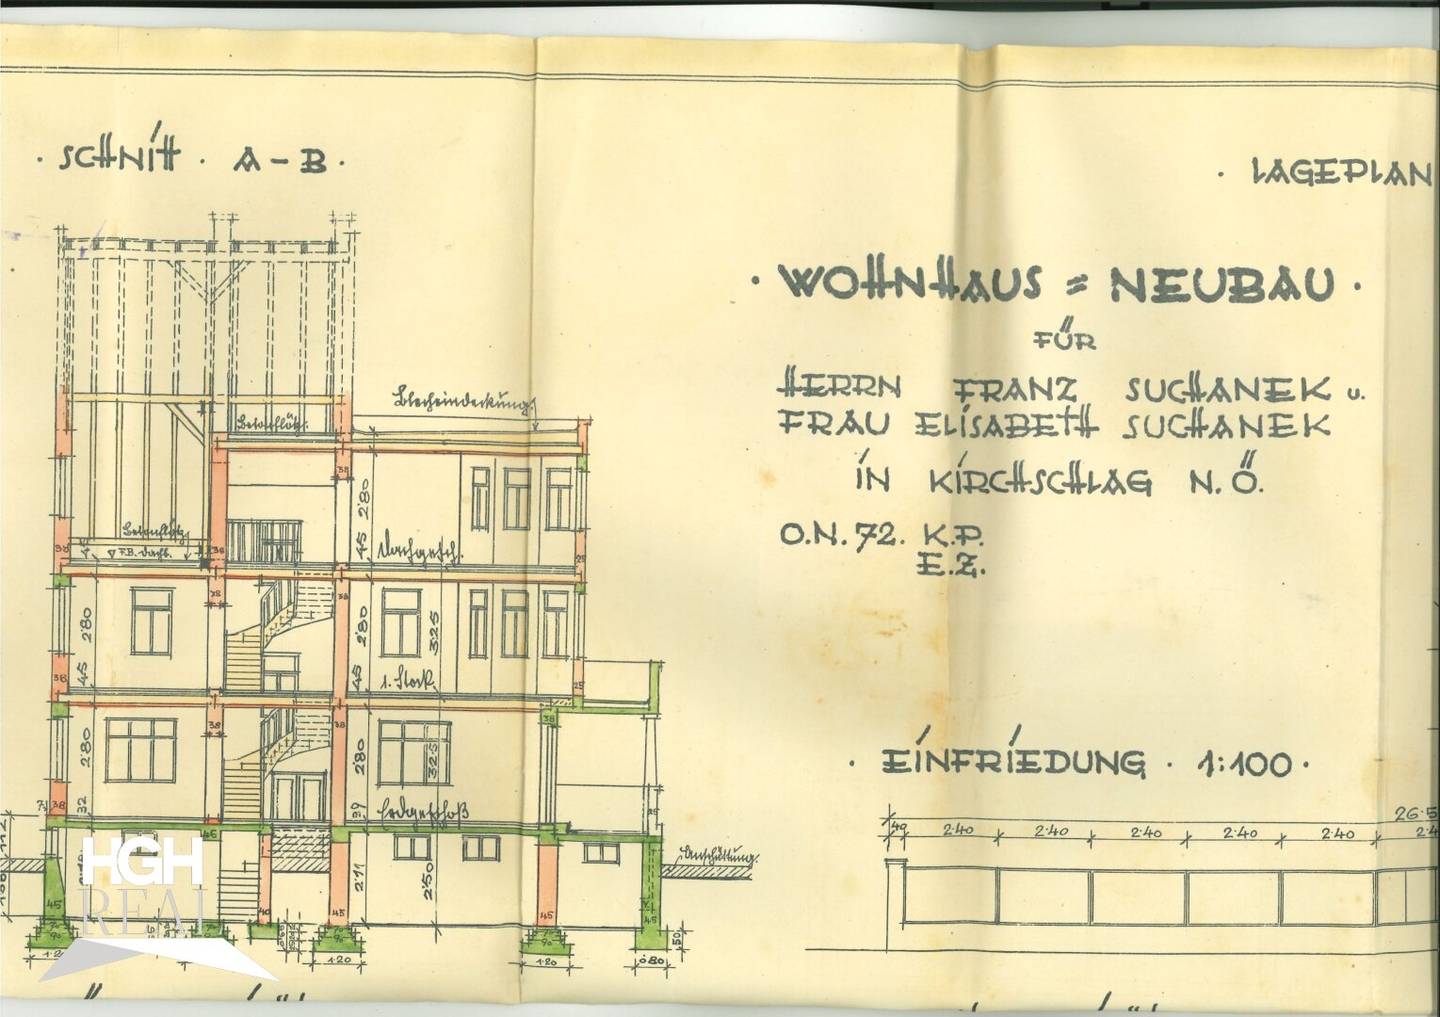 · SCHNITT · A – B ·
· LAGEPLAN
· WOHNHAUS = NEUBAU ·
FÜR
HERRN FRANZ SUCHANEK u.
FRAU ELISABETH SUCHANEK
IN KIRCHSCHLAG N. Ö.
O.N. 72. K.P.
E.Z.
Blecheindeckung
38
2'80
45
Dachgesch.
F.B. Dachb.
38
25
38
38
2'80
2'80
3.25
45
45
1. Stock
38
25
38
38
38
2'80
2'80
3.25
38
32
39
Erdgeschoß
45
2'11
2'50
Anschüttung
45
40
45
45
45
50
1·20
1·20
1·20
0·80
· EINFRIEDUNG · 1:100 ·
26·5
40 2·40 2·40 2·40 2·40 2·40 2·4
HGH
REAL